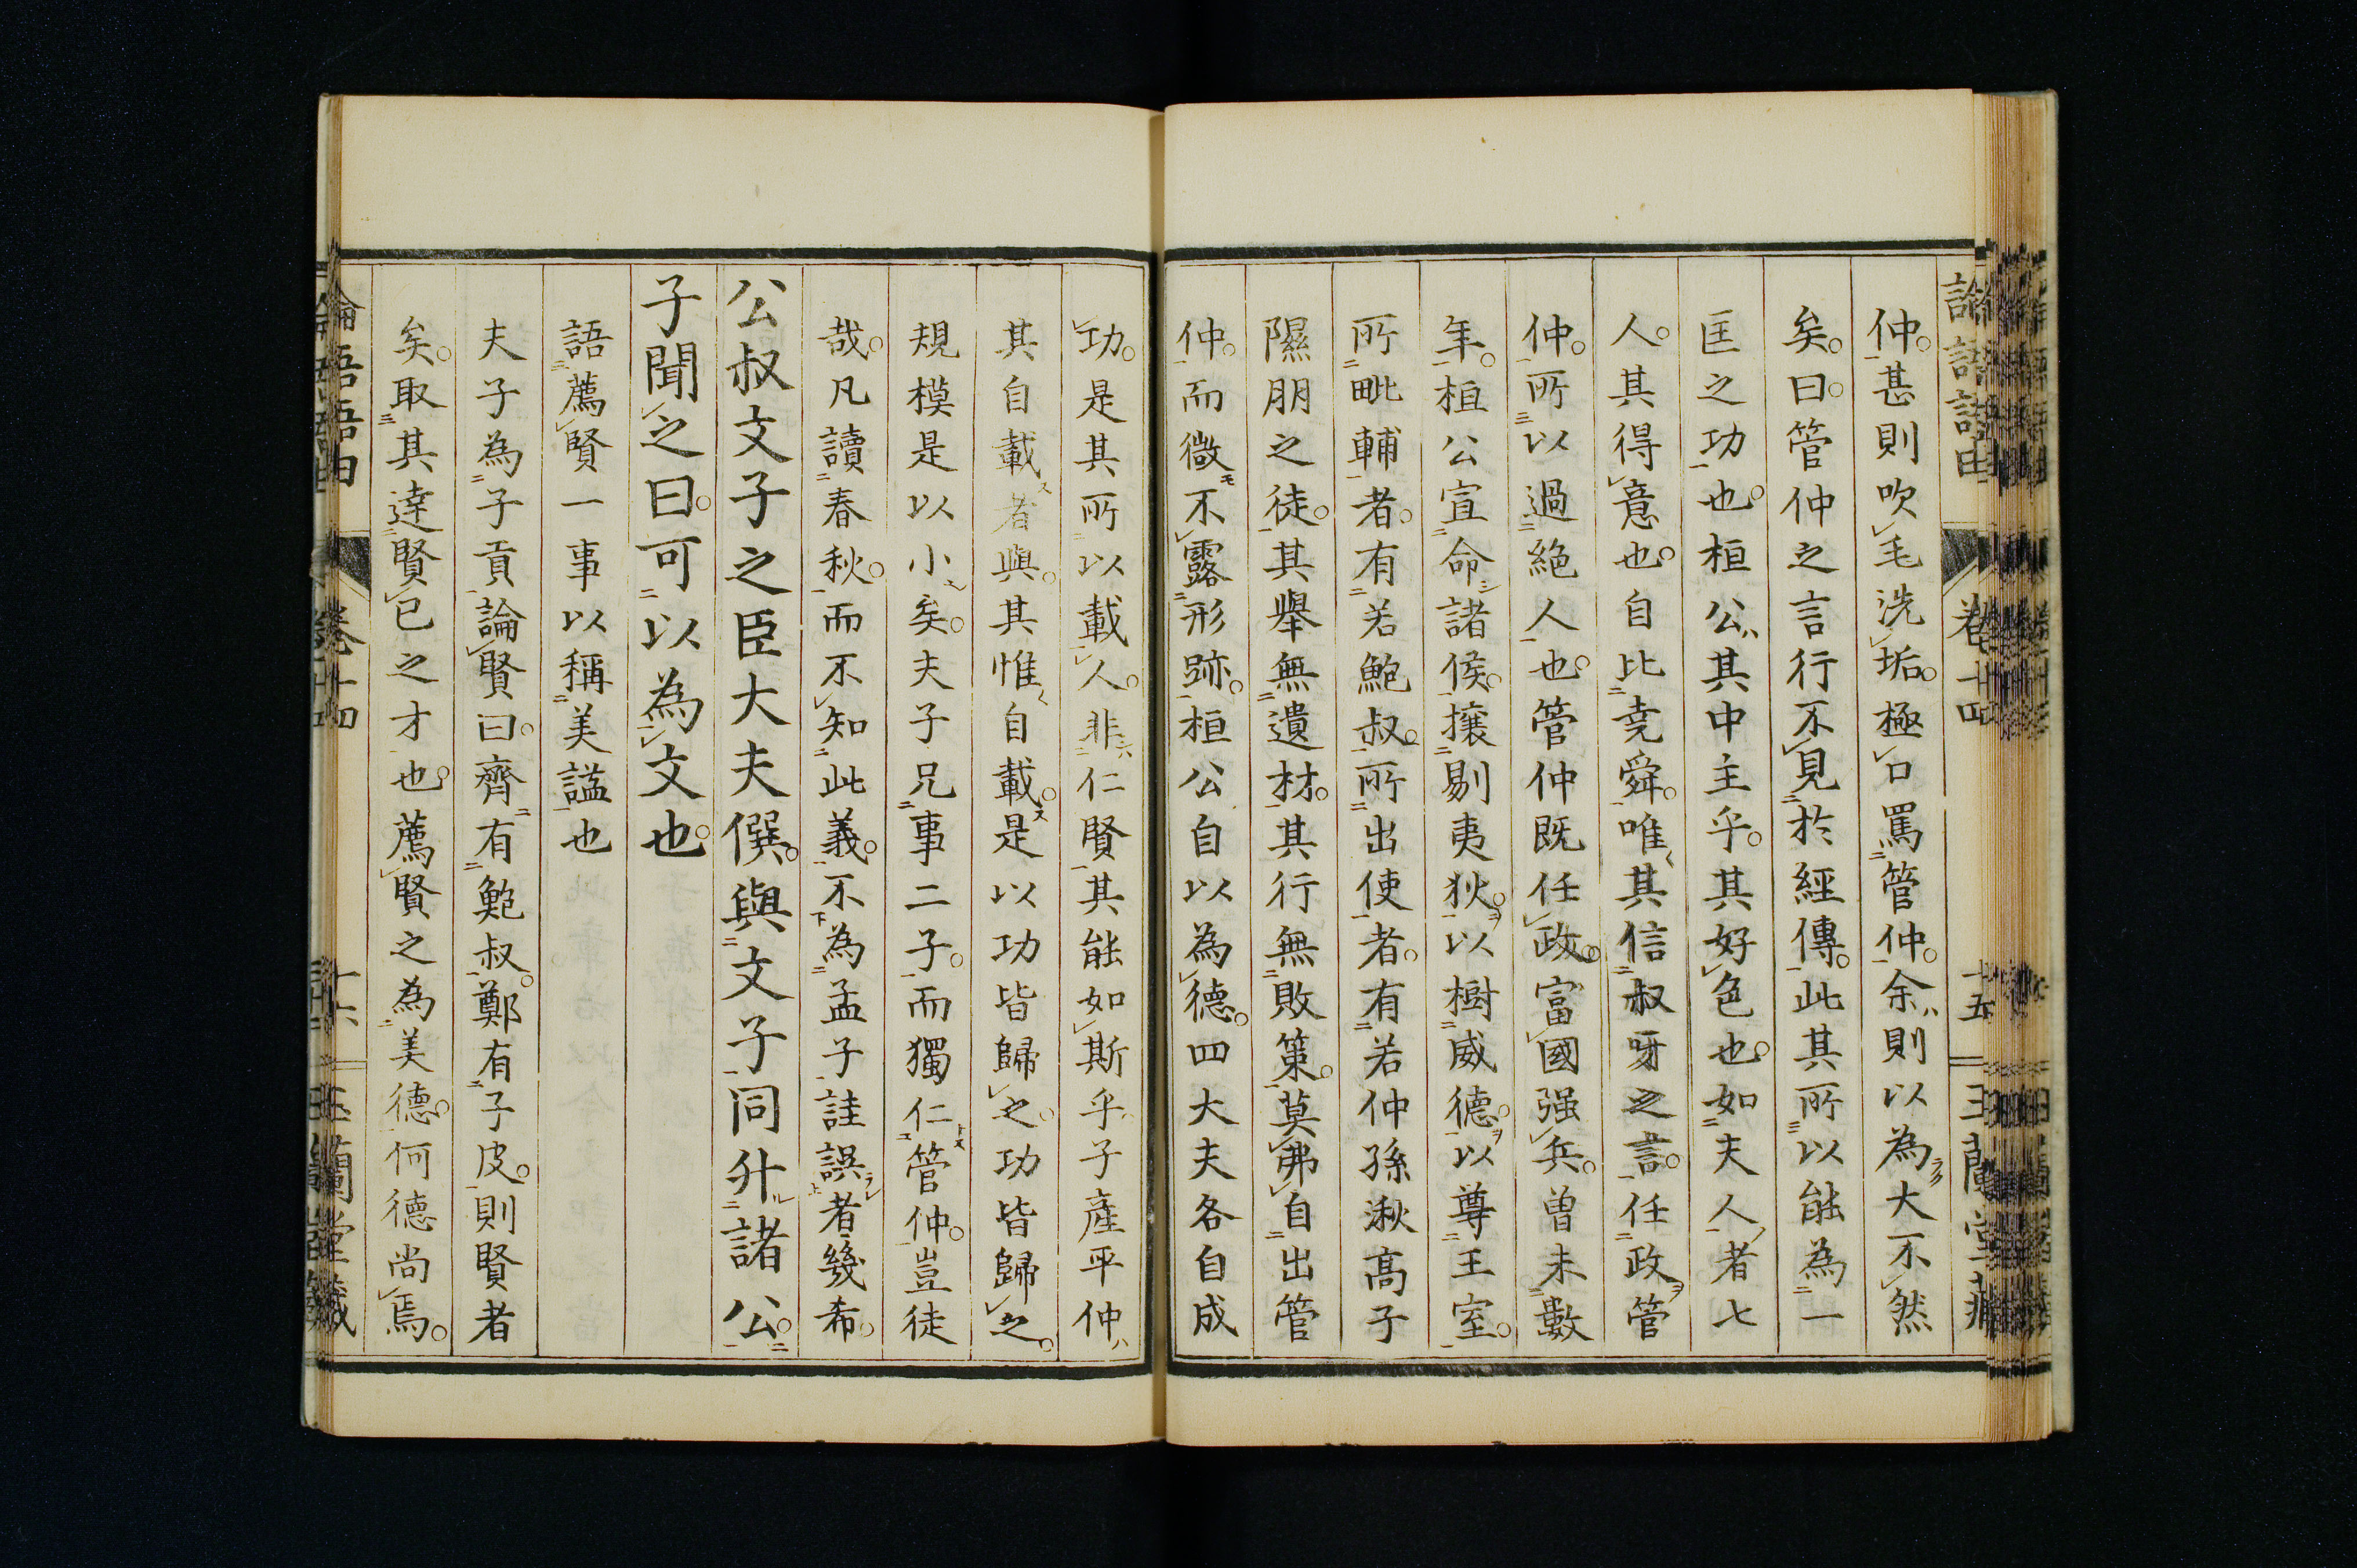 論語語由　卷十四　十五　玉蘭堂藏
仲。甚則吹毛洗垢。極口罵管仲。余則以為大不然
矣。曰。管仲之言行不見於經傳。此其所以能為一
匡之功也。桓公其中主乎。其好色也。如夫人者七
人。其得意也。自比堯舜。唯其信叔呀之言。任政管
仲。所以過絕人也。管仲既任政。富國强兵。曾未數
年。桓公宣命諸侯。攘剔夷狄。以樹威德。以尊王室。
所毗輔者。有若鮑叔。所出使者。有若仲孫湫高子
隰朋之徒。其舉無遺材。其行無敗策。莫弗自出管
仲。而微不露形跡。桓公自以為德。四大夫各自成
功。是其所以載人。非仁賢其能如斯乎。子產平仲
其自載者與。其惟自載。是以功皆歸之。功皆歸之。
規模是以小矣。夫子兄事二子。而獨仁管仲。豈徒
哉。凡讀春秋。而不知此義。不為孟子詿誤者幾希。
公叔文子之臣大夫僎。與文子同升諸公。
子聞之曰。可以為文也。
語薦賢一事以稱美謚也
夫子為子貢論賢曰。齊有鮑叔。鄭有子皮。則賢者
矣。取其達賢已之才也。薦賢之為美德。何德尚焉。
論語語由　卷十四　十六　玉蘭堂藏